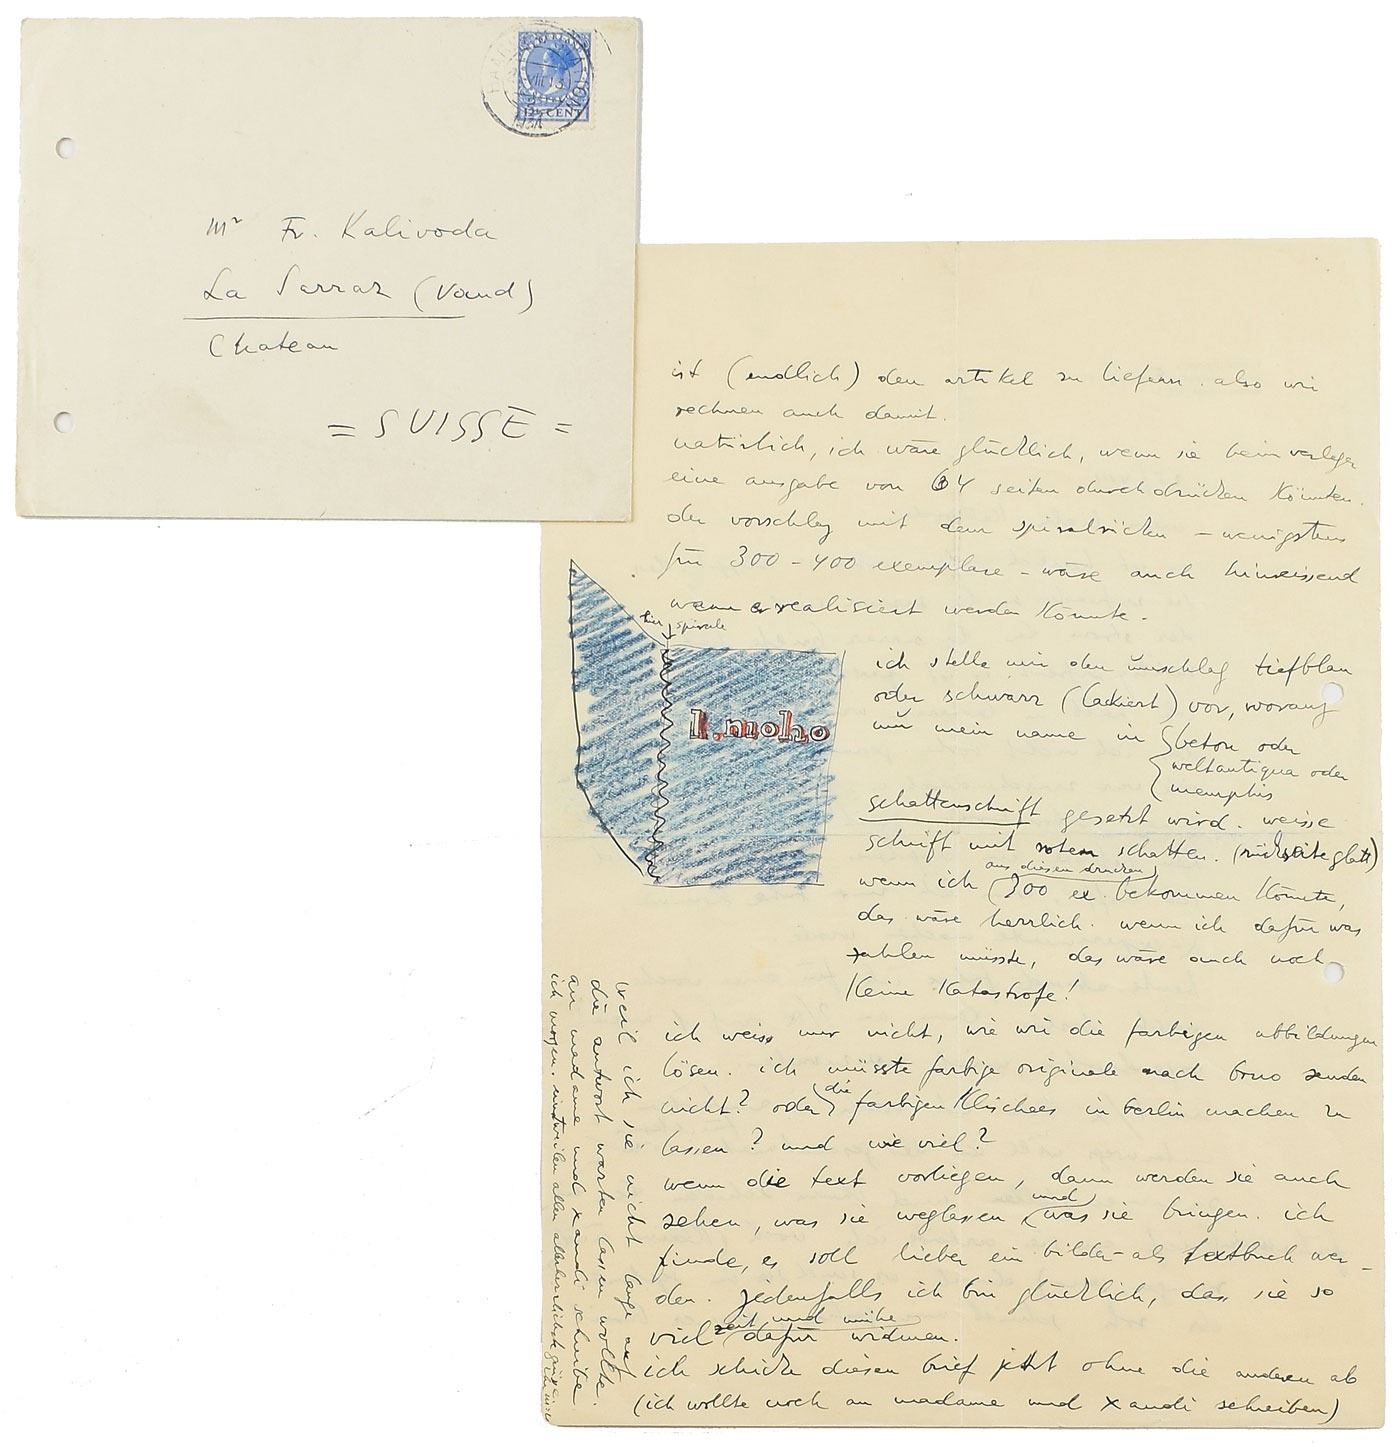 Mr Fr. Kalivoda
La Sarraz (Vaud)
Chateau
= SUISSE =
12½ CENT
ist (endlich) den artikel zu liefern. also wir
rechnen auch damit.
natürlich, ich wäre glücklich, wenn sie beim verleger
eine ausgabe von 64 seiten durchdrücken könnten.
der vorschlag mit dem spiralrücken – wenigstens
für 300 – 400 exemplare – wäre auch hinreissend
wenn er realisiert werden könnte.
hier spirale
l. moho
ich stelle mir den umschlag tiefblau
oder schwarz (lackiert) vor, worauf
nur mein name in beton oder
weltantiqua oder
memphis
schattenschrift gesetzt wird. weisse
schrift mit rotem schatten. (rückseite glatt)
aus diesen drucken
wenn ich 300 ex. bekommen könnte,
das wäre herrlich. wenn ich dafür was
zahlen müsste, das wäre auch noch
keine katastrofe!
ich weiss nur nicht, wie wir die farbigen abbildungen
lösen. ich müsste farbige originale nach brno senden
nicht? oder die farbigen klischees in berlin machen zu
lassen? und wie viel?
wenn die text vorliegen, dann werden sie auch
sehen, was sie weglassen und was sie bringen. ich
finde, es soll lieber ein bilder- als textbuch wer-
den. jedenfalls ich bin glücklich, dass sie so
viel zeit und mühe dafür widmen.
ich schicke diesen brief jetzt ohne die anderen ab
(ich wollte noch an madame und xandi schreiben)
weil ich sie nicht lange auf
die antwort warten lassen wollte.
an madame und xandi schreibe
ich morgen. einstweilen allen allerherrlichste grüsse